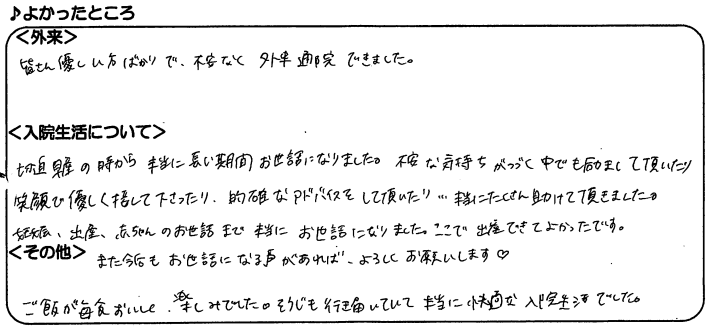 ♪よかったところ
<外来>
皆さん優しい方ばかりで、不安なく外来通院できました。
<入院生活について>
切迫早産の時から本当に長い期間お世話になりました。不安な気持ちがつづく中でも励まして頂いたり
笑顔で優しく接して下さったり、的確なアドバイスをして頂いたり…本当にたくさん助けて頂きました。
妊娠、出産、赤ちゃんのお世話まで本当にお世話になりました。ここで出産できてよかったです。
<その他>
また今後もお世話になる事があれば、よろしくお願いします♡
ご飯が毎食おいしく、楽しみでした。そうじも行き届いていて本当に快適な入院生活でした。